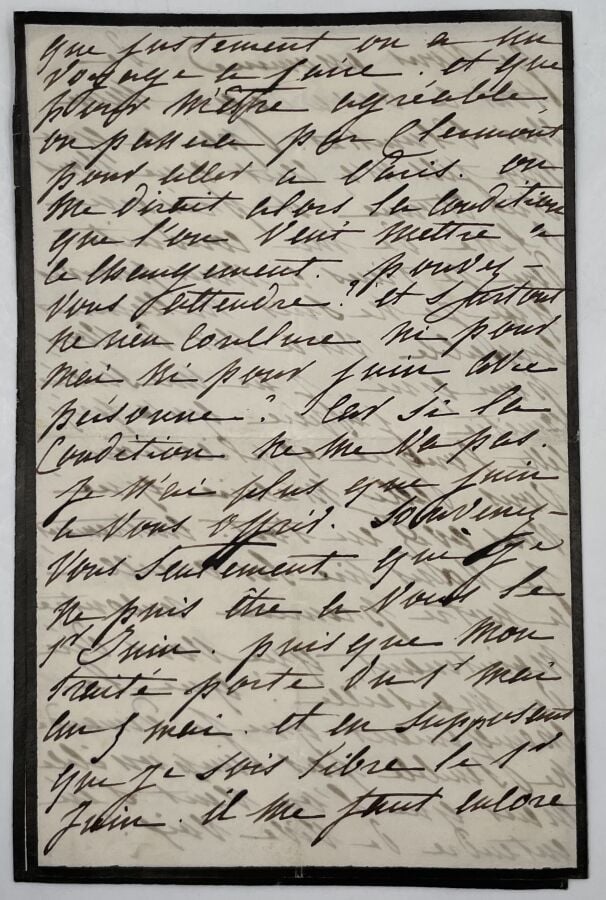 que justement on a un
voyage a faire. et que
pour m'être agréable,
on passera par Clermont
pour aller a Paris. on
me dirait alors la condition
que l'on veut mettre a
ce changement. pouvez-
vous attendre? et surtout
ne rien conclure ni pour
mai ni pour juin avec
personne? Car si la
Condition ne me va pas.
je n'ai plus que juin
a vous offrir. Souvenez-
vous seulement que je
ne puis être a vous le
1r Juin. puisque mon
traité porte du 1r mai
au mai. et en supposant
que je sois libre le 1r
Juin. il me faut encore